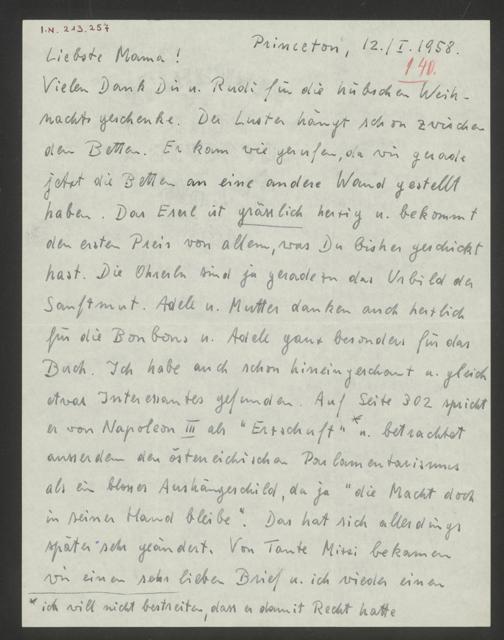 I.N. 213.257
Princeton, 12./I. 1958.
140.
Liebste Mama!
Vielen Dank Dir u. Rudi für die hübschen Weih-
nachtsgeschenke. Der Luster hängt schon zwischen
den Betten. Er kam wie gerufen, da wir gerade
jetzt die Betten an eine andere Wand gestellt
haben. Das Eserl ist grässlich herzig u. bekommt
den ersten Preis von allem, was Du bisher geschickt
hast. Die Ohrerln sind ja geradezu das Urbild der
Sanftmut. Adele u. Mutter danken auch herzlich
für die Bonbons u. Adele ganz besonders für das
Buch. Ich habe auch schon hineingeschaut u. gleich
etwas Interessantes gefunden. Auf Seite 302 spricht
er von Napoleon III als "Erzschuft"* u. betrachtet
ausserdem den österreichischen Parlamentarismus
als ein blosses Aushängeschild, da ja "die Macht doch
in seiner Hand bleibe". Das hat sich allerdings
später sehr geändert. Von Tante Mizi bekamen
wir einen sehr lieben Brief u. ich wieder einen
* ich will nicht bestreiten, dass er damit Recht hatte